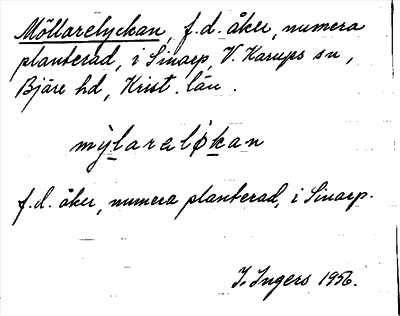 Möllarelyckan, f.d. åker, numera
planterad, i Sinarp, V. Karups sn,
Bjäre hd, Krist. län.
mỳlaraløkan
f.d. åker, numera planterad, i Sinarp.
I. Ingers 1956.